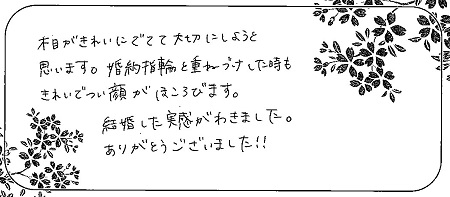 木目がきれいにでてて大切にしようと
思います。婚約指輪と重ねづけした時も
きれいでつい顔がほころびます。
結婚した実感がわきました。
ありがとうございました!!